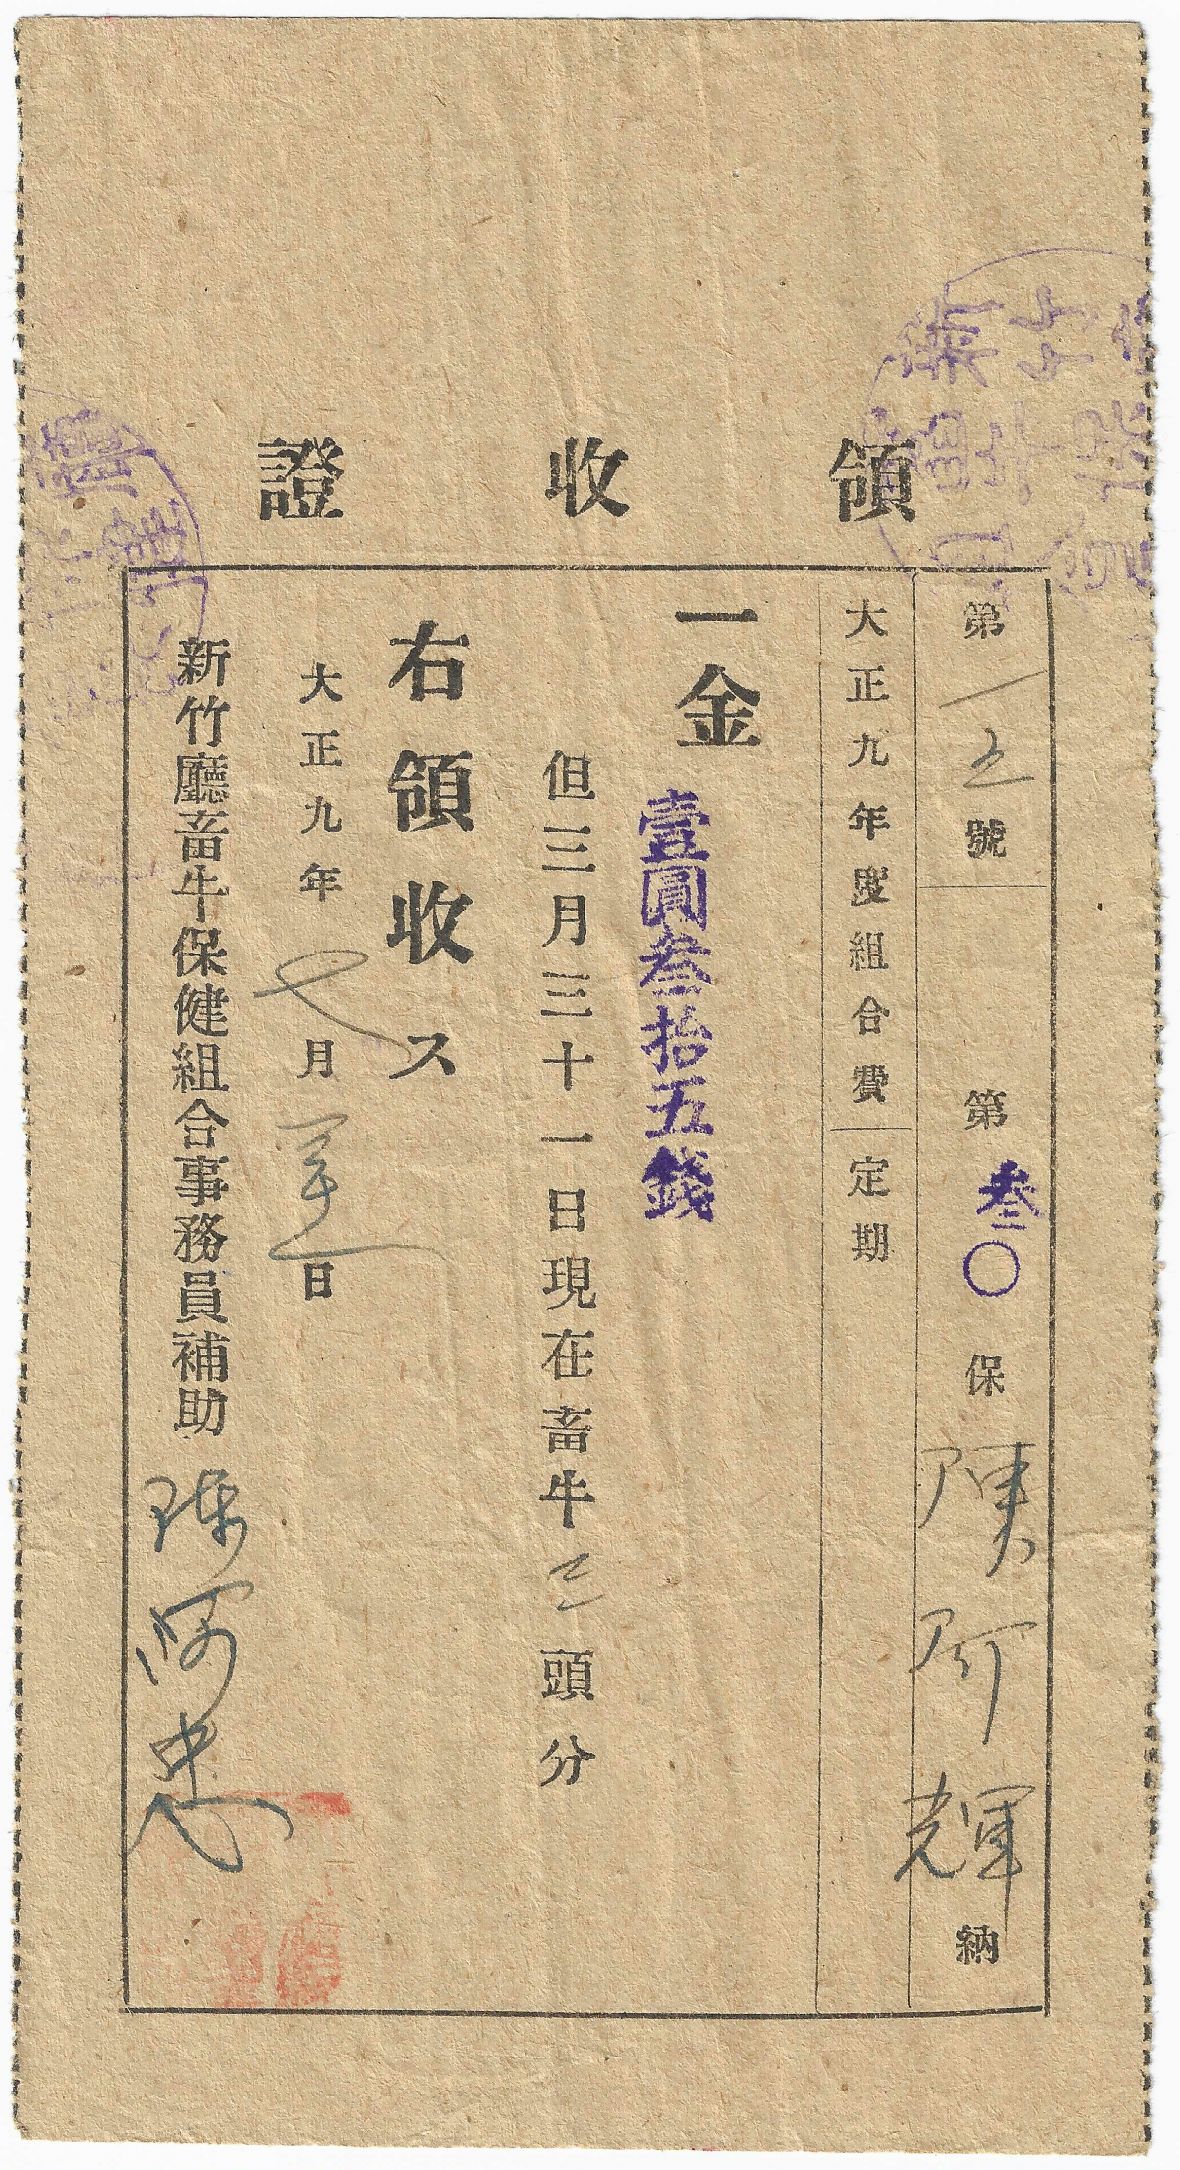 領收證
第一五號 第叁〇保 陳阿輝 納
大正九年度組合費 定期
一金 壹圓叁拾五錢
但三月三十一日現在畜牛三頭分
右領收ス
大正九年七月 日
新竹廳畜牛保健組合事務員補助 陳阿忠